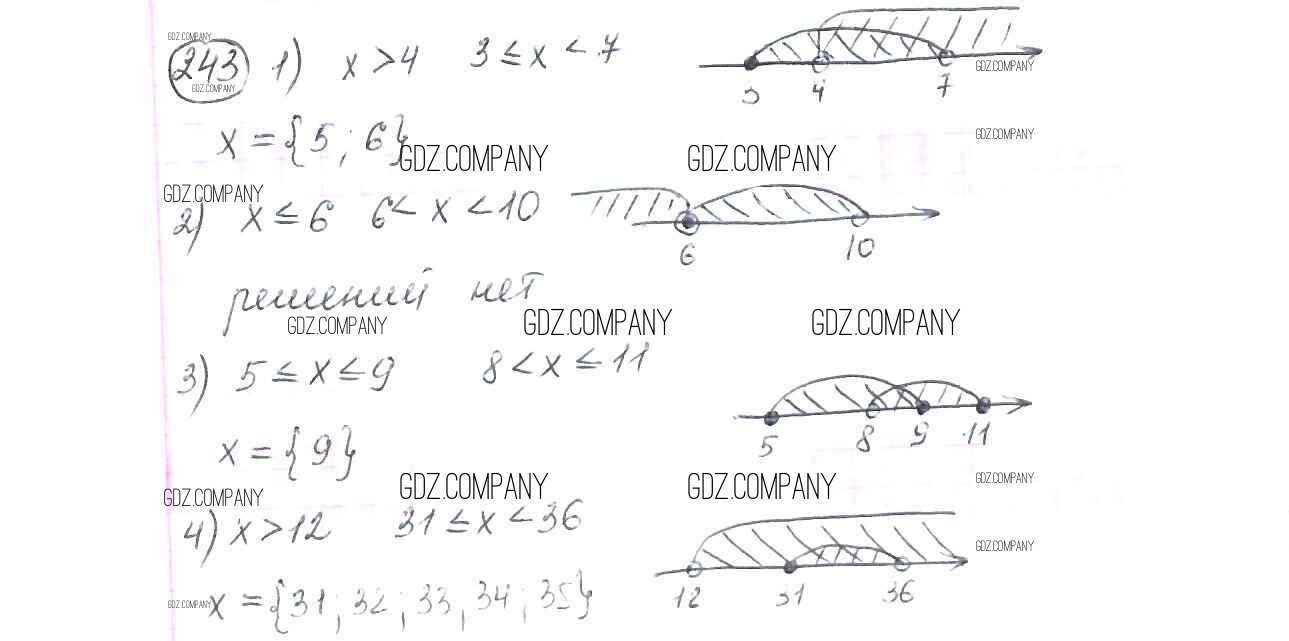 GDZ.COMPANY
243 1) x > 4 3 ≤ x < 7
GDZ.COMPANY
3 4 7
GDZ.COMPANY
x = {5 ; 6}
GDZ.COMPANY
GDZ.COMPANY GDZ.COMPANY
GDZ.COMPANY
2) x ≤ 6 6 < x < 10
6 10
решений нет
GDZ.COMPANY GDZ.COMPANY GDZ.COMPANY
3) 5 ≤ x ≤ 9 8 < x ≤ 11
5 8 9 11
x = {9}
GDZ.COMPANY GDZ.COMPANY GDZ.COMPANY GDZ.COMPANY
4) x > 12 31 ≤ x < 36
GDZ.COMPANY
12 31 36
GDZ.COMPANY
x = {31 ; 32 ; 33, 34 ; 35}